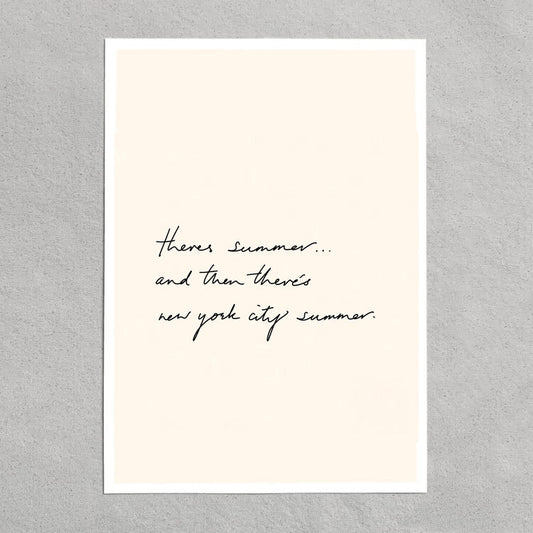 theres summer...
and then there's
new york city summer.